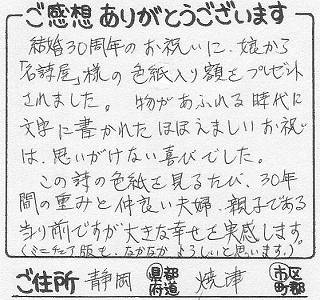 ご感想ありがとうございます
結婚30周年のお祝いに、娘から
「名詩屋」様の色紙入り額をプレゼント
されました。 物があふれる時代に
文字に書かれたほほえましいお祝
は、思いがけない喜びでした。
この詩の色紙を見るたび、30年
間の重みと仲良い夫婦、親子である
当り前ですが大きな幸せを実感します。
(ミニたて版も、なかなかよろしいと思います。)
ご住所 静岡 都道府県 焼津 市区町郡